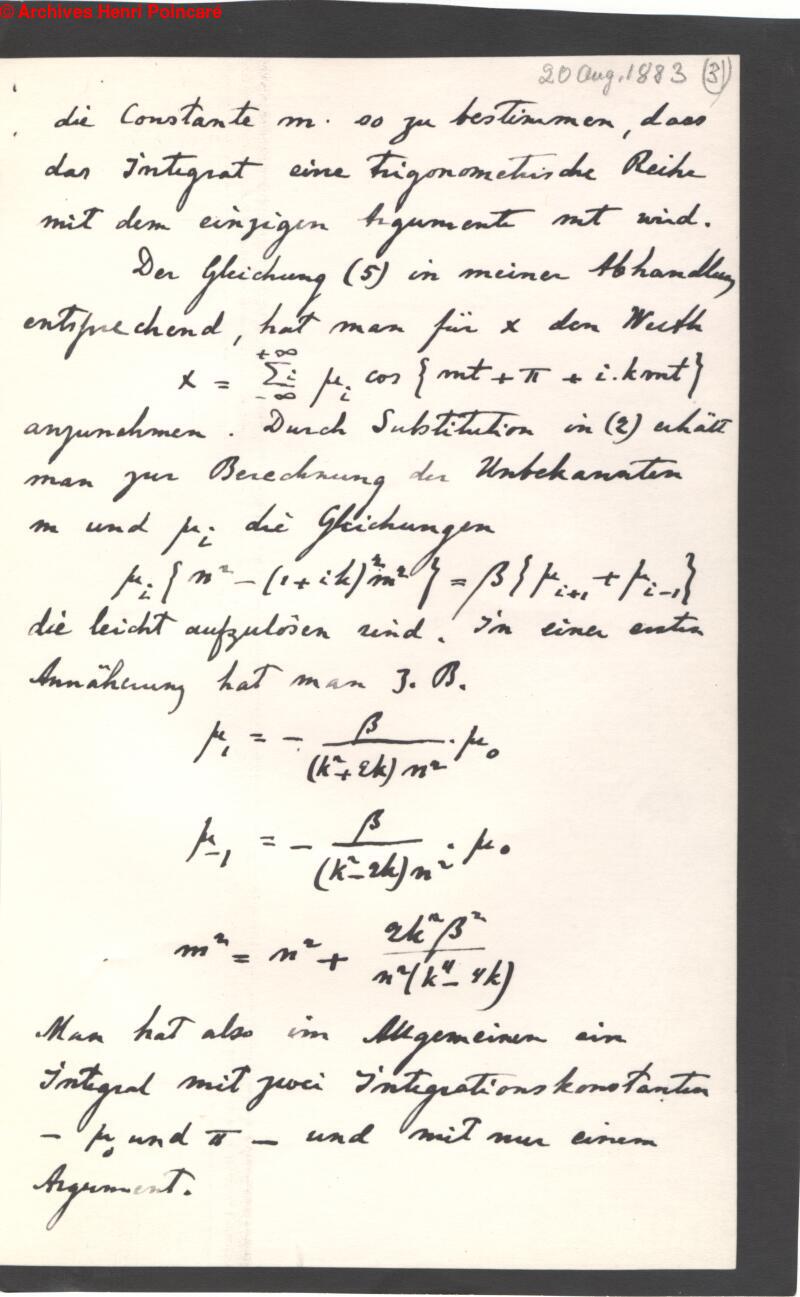 © Archives Henri Poincaré
20 Aug. 1883 (3)
die Constante m. so zu bestimmen, dass
das Integral eine trigonometrische Reihe
mit dem einzigen Argumente mt wird.
Der Gleichung (5) in meiner Abhandlung
entsprechend, hat man für x den Werth
x = \sum_{-\infty}^{+\infty}{}_i μ_i cos { mt + π + i.kmt }
anzunehmen. Durch Substitution in (2) erhält
man zur Berechnung der Unbekannten
m und μ_i die Gleichungen
μ_i { n² – (1+ik)² m² } = β { μ_{i+1} + μ_{i-1} }
die leicht aufzulösen sind. In einer ersten
Annäherung hat man z. B.
μ_1 = – \frac{β}{(k²+2k) n²} . μ_0
μ_{-1} = – \frac{β}{(k²-2k) n²} . μ_0
m² = n² + \frac{2k²β²}{n²(k⁴ – 4k)}
Man hat also im Allgemeinen ein
Integral mit zwei Integrationskonstanten
– μ_0 und π – und mit nur einem
Argument.